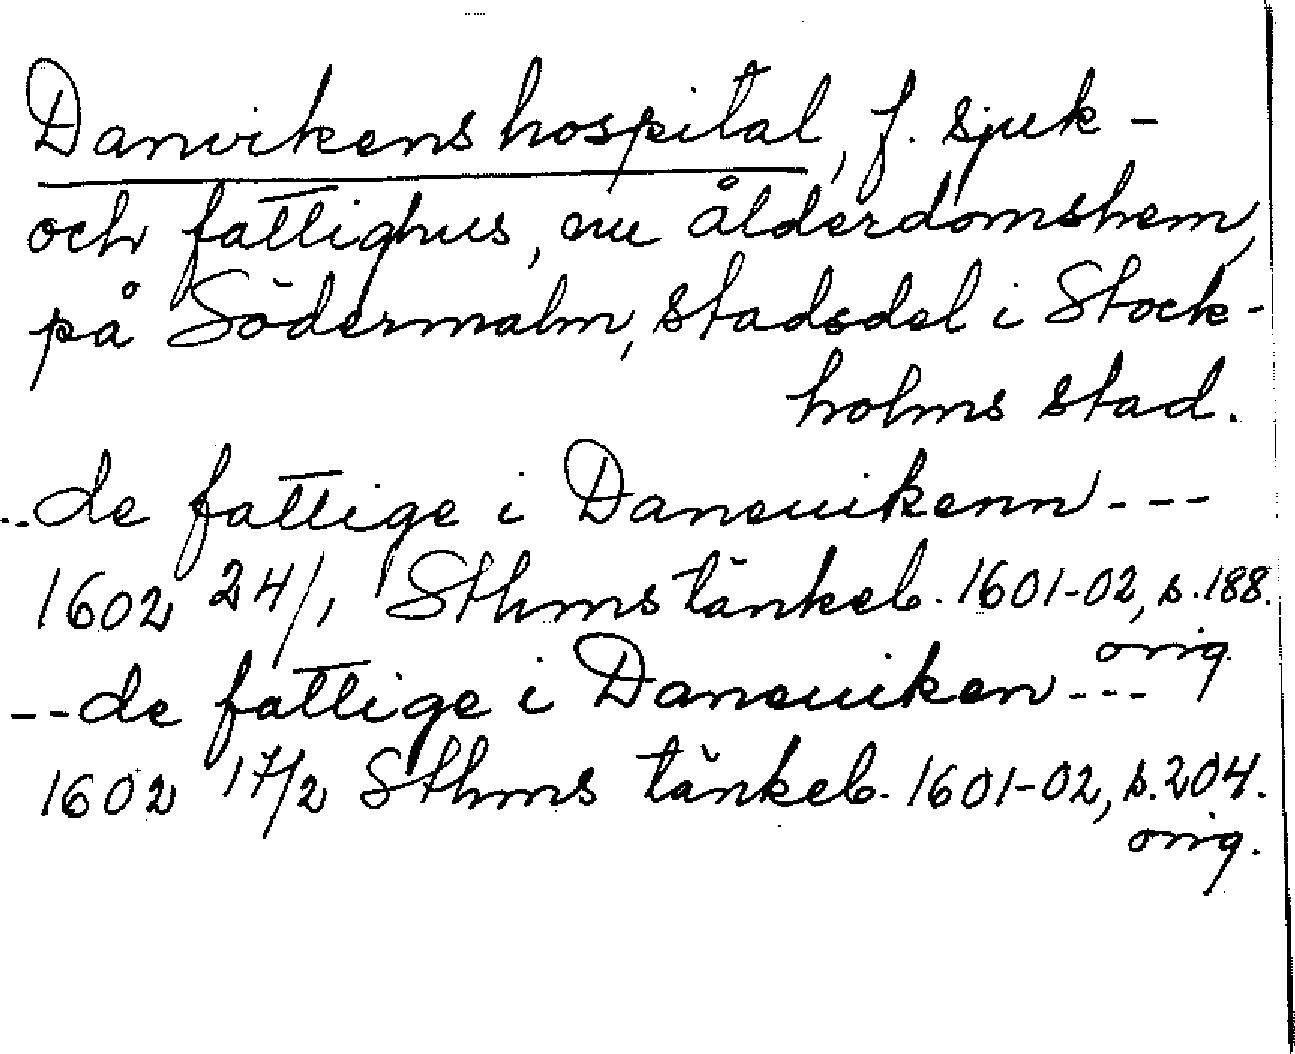 Danvikens hospital, f. sjuk-
och fattighus, nu ålderdomshem,
på Södermalm, stadsdel i Stock-
holms stad.
--de fattige i Daneuikenn---
1602 24/1 Sthms tänkeb. 1601-02, s. 188.
orig.
--de fattige i Daneuiken---
1602 17/2 Sthms tänkeb. 1601-02, s. 204.
orig.